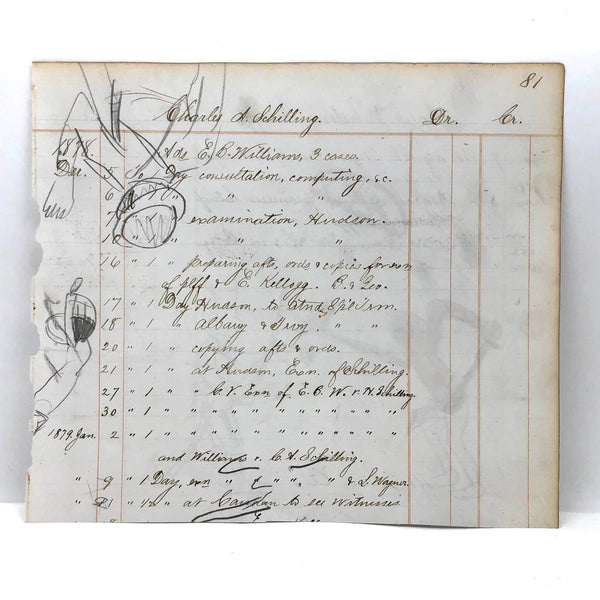 81
Charles A. Schilling. Dr. Cr.
1878 Ads E. C. Williams, 3 cases.
Dec. 5 To Day consultation, computing, &c.
6 " " "
7 " " examination, Hudson.
10 " " " "
16 " 1 " preparing afts, ords & copies for
of plff & E. Kellogg.
17 " 1 Day Hudson, to Atnd Spl Trm.
18 " 1 " Albany & Troy. " "
20 " 1 " copying afts & ords.
21 " 1 " at Hudson, Exn. of Schilling.
27 " 1 " " C. V. Exn of E. C. W. v. H. Schilling.
30 " 1 " " " " " " " " " "
1879. Jan. 2 " 1 " " " " " " " " " "
and Williams v. C. A. Schilling.
" 9 " 1 Day, exn " " " " & L. Wagner.
" 21 " 1/2 " at to see witnesses